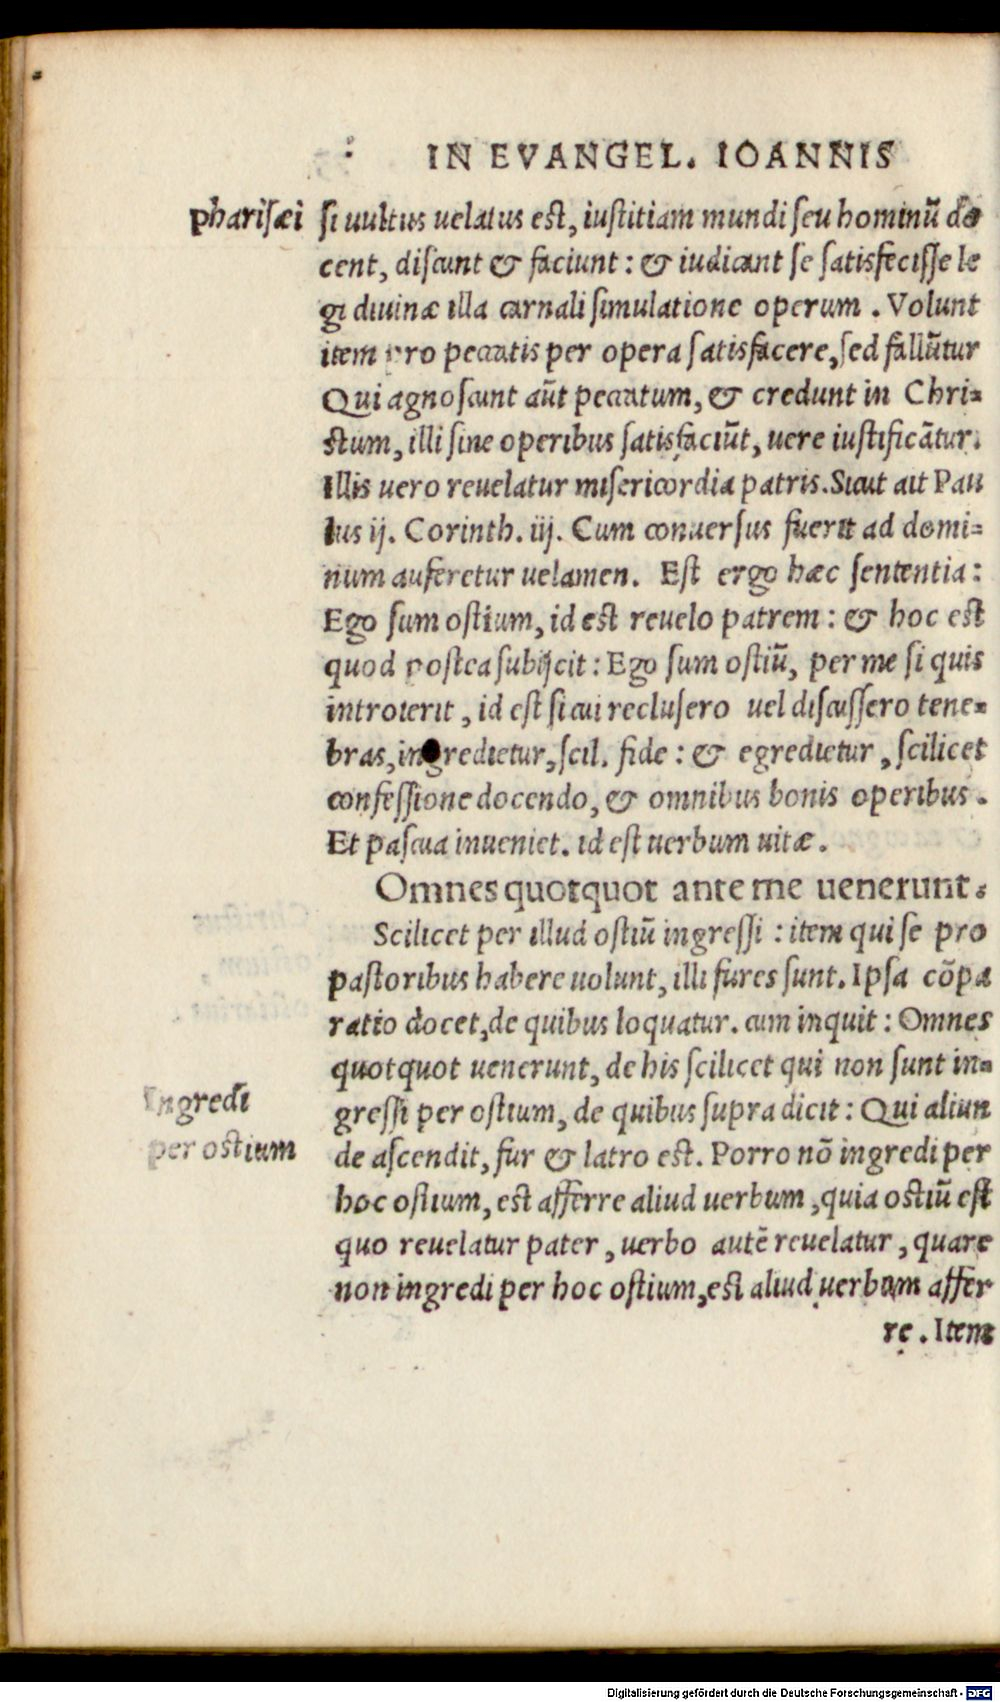 IN EVANGEL. IOANNIS
pharisæi
si uultus uelatus est, iustitiam mundi seu hominũ do
cent, discunt & faciunt: & iudicant se satisfecisse le
gi diuinæ illa carnali simulatione operum. Volunt
item pro peccatis per opera satisfacere, sed fallũtur
Qui agnoscunt aũt peccatum, & credunt in Chri=
stum, illi sine operibus satisfaciũt, uere iustificãtur.
Illis uero reuelatur misericordia patris. Sicut ait Pau
lus ij. Corinth. iij. Cum conuersus fuerit ad domi=
num auferetur uelamen. Est ergo hæc sententia:
Ego sum ostium, id est reuelo patrem: & hoc est
quod postea subijcit: Ego sum ostiũ, per me si quis
introierit, id est si cui reclusero uel discussero tene=
bras, ingredietur, scil. fide: & egredietur, scilicet
confessione docendo, & omnibus bonis operibus.
Et pascua inueniet. id est uerbum uitæ.
Omnes quotquot ante me uenerunt.
Scilicet per illud ostiũ ingressi: item qui se pro
pastoribus habere uolunt, illi fures sunt. Ipsa cõpa
ratio docet, de quibus loquatur. cum inquit: Omnes
quotquot uenerunt, de his scilicet qui non sunt in=
gressi per ostium, de quibus supra dicit: Qui aliun
de ascendit, fur & latro est. Porro nõ ingredi per
hoc ostium, est afferre aliud uerbum, quia ostiũ est
quo reuelatur pater, uerbo autẽ reuelatur, quare
non ingredi per hoc ostium, est aliud uerbum affer
re. Item
Ingredi
per ostium
Digitalisierung gefördert durch die Deutsche Forschungsgemeinschaft - DFG